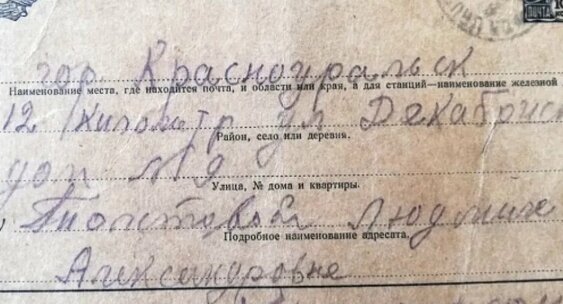 ПОЧТА
гор Красноуральск
Наименование места, где находится почта, и области или края, а для станций—наименование железной
12 Километр ул Декабрис
Район, село или деревня.
дом № 9
Улица, № дома и квартиры.
Людмиле
Подробное наименование адресата.
Александровне